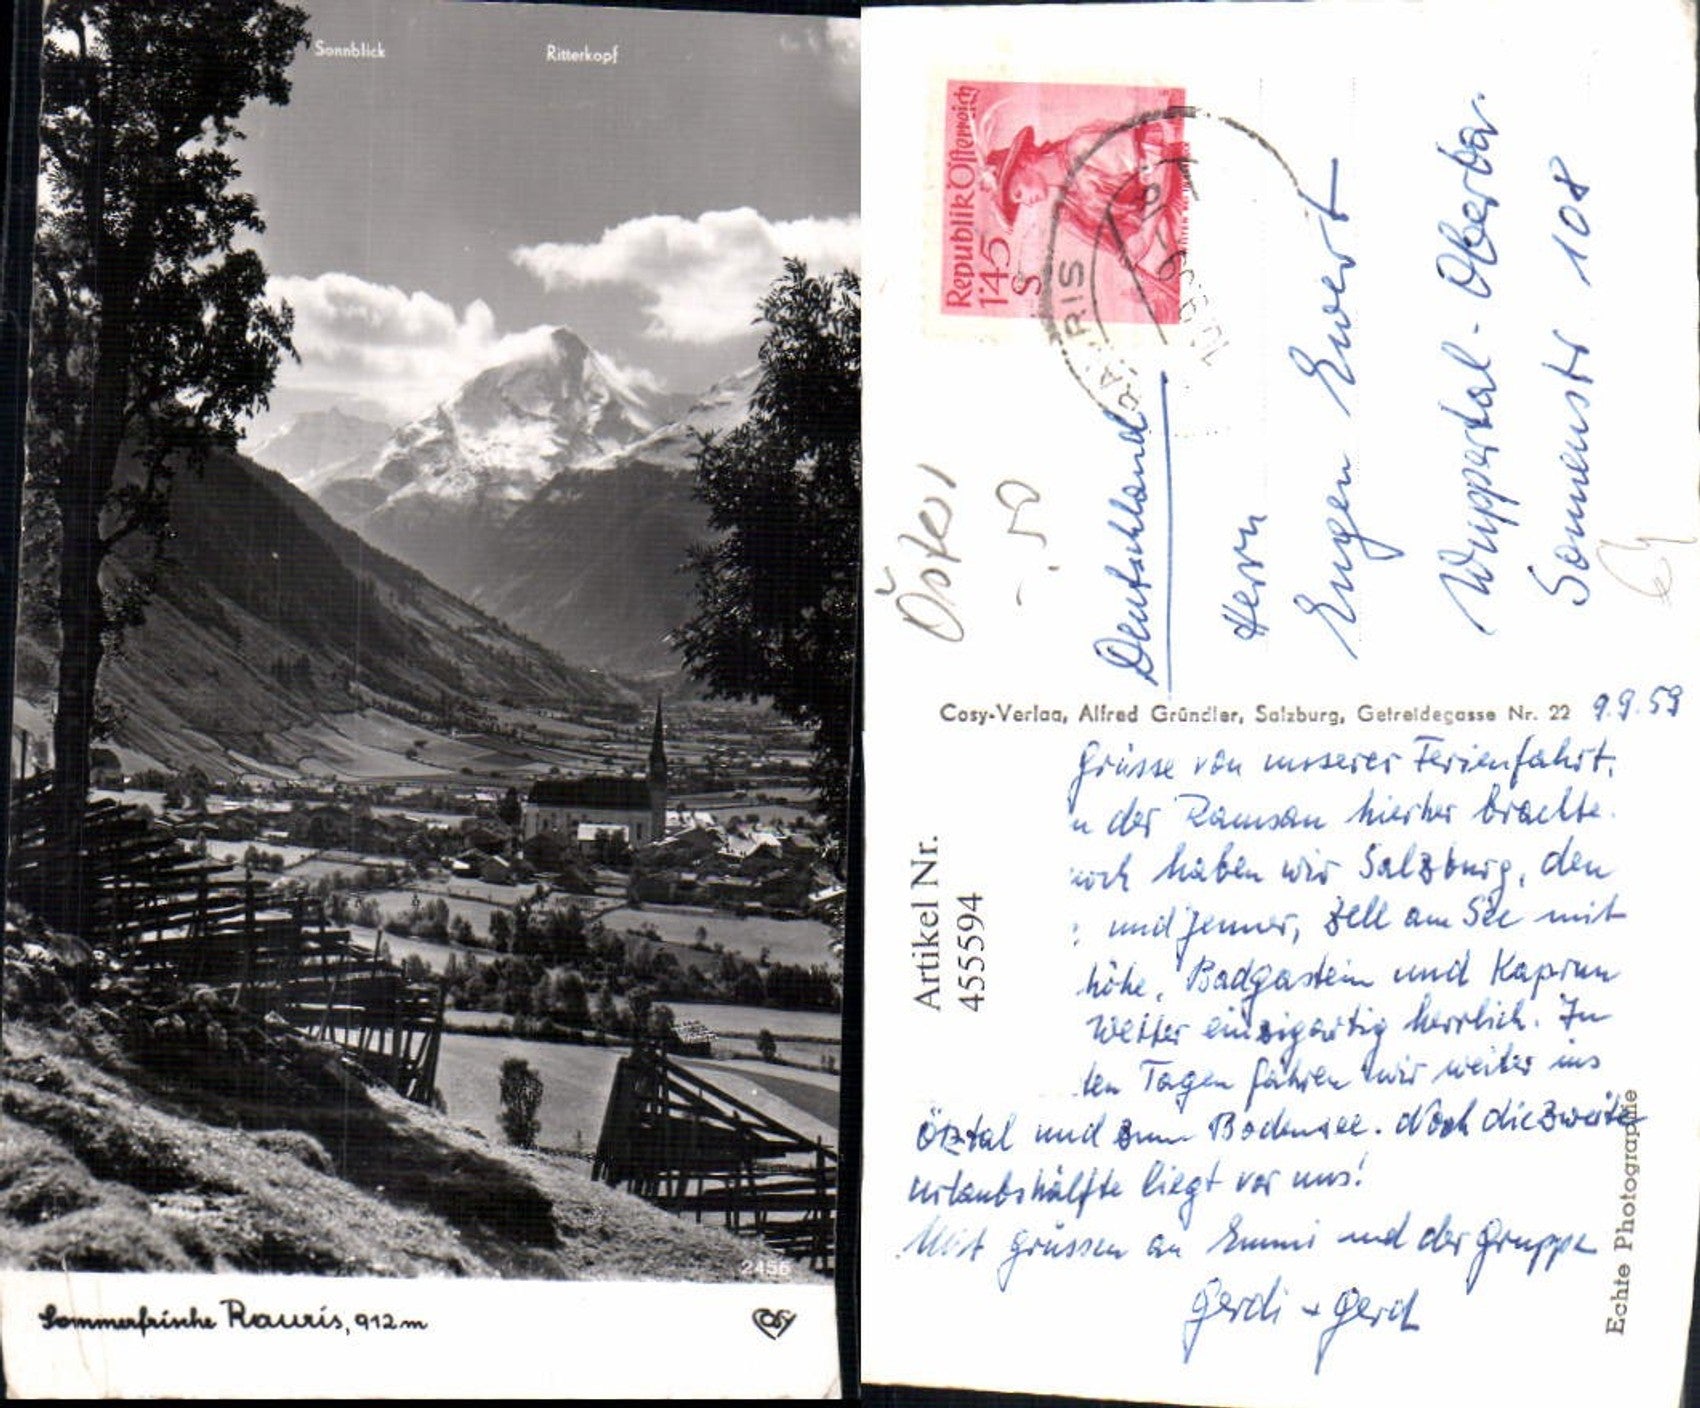 Sonnblick
Ritterkopf
2456
Sommerfrische Rauris, 912 m
COSY
Republik Österreich
1'45
S
RAURIS
Österr
-.50
Deutschland
Herrn
Eugen Ewert
Wuppertal-Oberba.
Sonnenstr 108
Cosy-Verlag, Alfred Gründler, Salzburg, Getreidegasse Nr. 22
9.9.59
Artikel Nr.
455594
Grüsse von unserer Ferienfahrt,
n der Ramsau hierher brachte.
noch haben wir Salzburg, den
und Jenner, Zell am See mit
höhe, Badgastein und Kaprun
Wetter einzigartig herrlich. In
ten Tagen fahren wir weiter ins
Ötztal und zum Bodensee. Noch die zweite
Urlaubshälfte liegt vor uns!
Mit Grüssen an Emmi und der Gruppe
Gerdi + Gerd
Echte Photographie